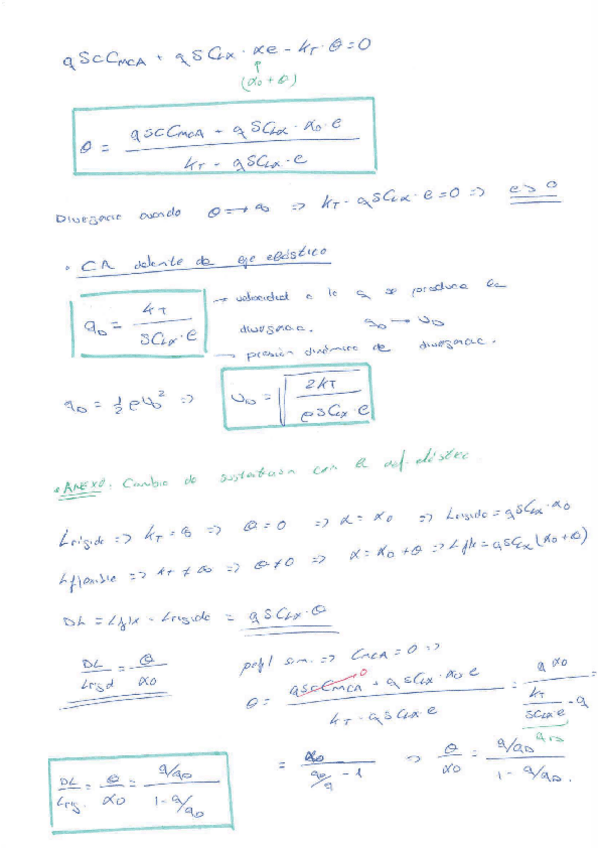 qScC_MCA + qSC_Lα · αe - k_T · θ = 0
↑
(α_0 + θ)
θ = (qScC_MCA + qSC_Lα · α_0 · e) / (k_T - qSC_Lα · e)
Divergencia cuando θ → ∞ ⇒ k_T - qSC_Lα · e = 0 ⇒ e > 0
• CA delante de eje elástico
q_D = k_T / (SC_Lα · e) → velocidad a la q se produce la
divergencia. q_D → U_D
→ presión dinámica de divergencia.
q_D = 1/2 ρU_D² ⇒ U_D = √(2k_T / (ρSC_Lα · e))
• ANEXO: Cambio de sustentación con el def. elástec.
L rígido ⇒ k_T = ∞ ⇒ θ = 0 ⇒ α = α_0 ⇒ L rígido = qSC_Lα · α_0
L flexible ⇒ k_T ≠ ∞ ⇒ θ ≠ 0 ⇒ α = α_0 + θ ⇒ L flx = qSC_Lα (α_0 + θ)
DL = L flx - L rígido = qSC_Lα · θ
DL / L rígd = θ / α_0 perfil sim. ⇒ C_MCA = 0 ⇒
θ = (qScC_MCA→0 + qSC_Lα · α_0 e) / (k_T - qSC_Lα e) = q α_0 / (k_T / (SC_Lα e) - q)
q_D
= α_0 / (q_D/q - 1) ⇒ θ/α_0 = (q/q_D) / (1 - q/q_D).
DL / L ríg. = θ / α_0 = (q/q_D) / (1 - q/q_D)